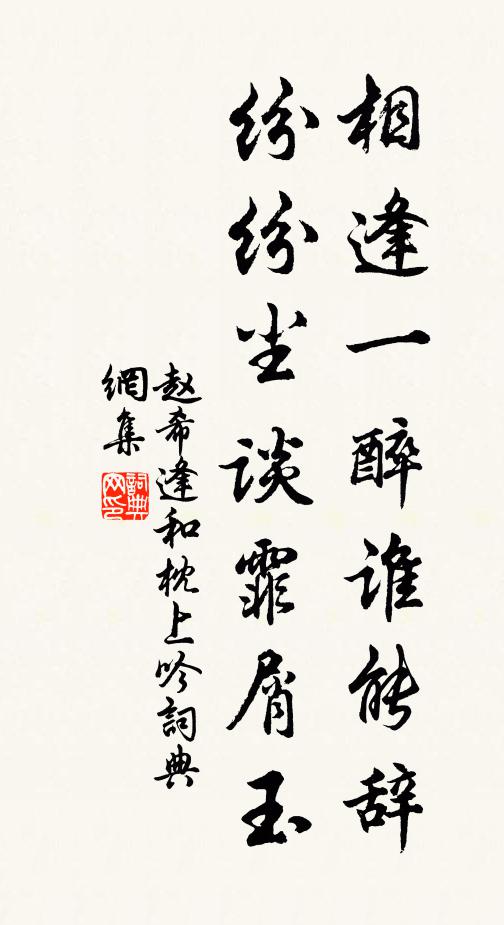 相逢一醉谁能辞
纷纷坐谈霏屑玉
赵希逢和枕上吟詞典
網集
詞典
网印